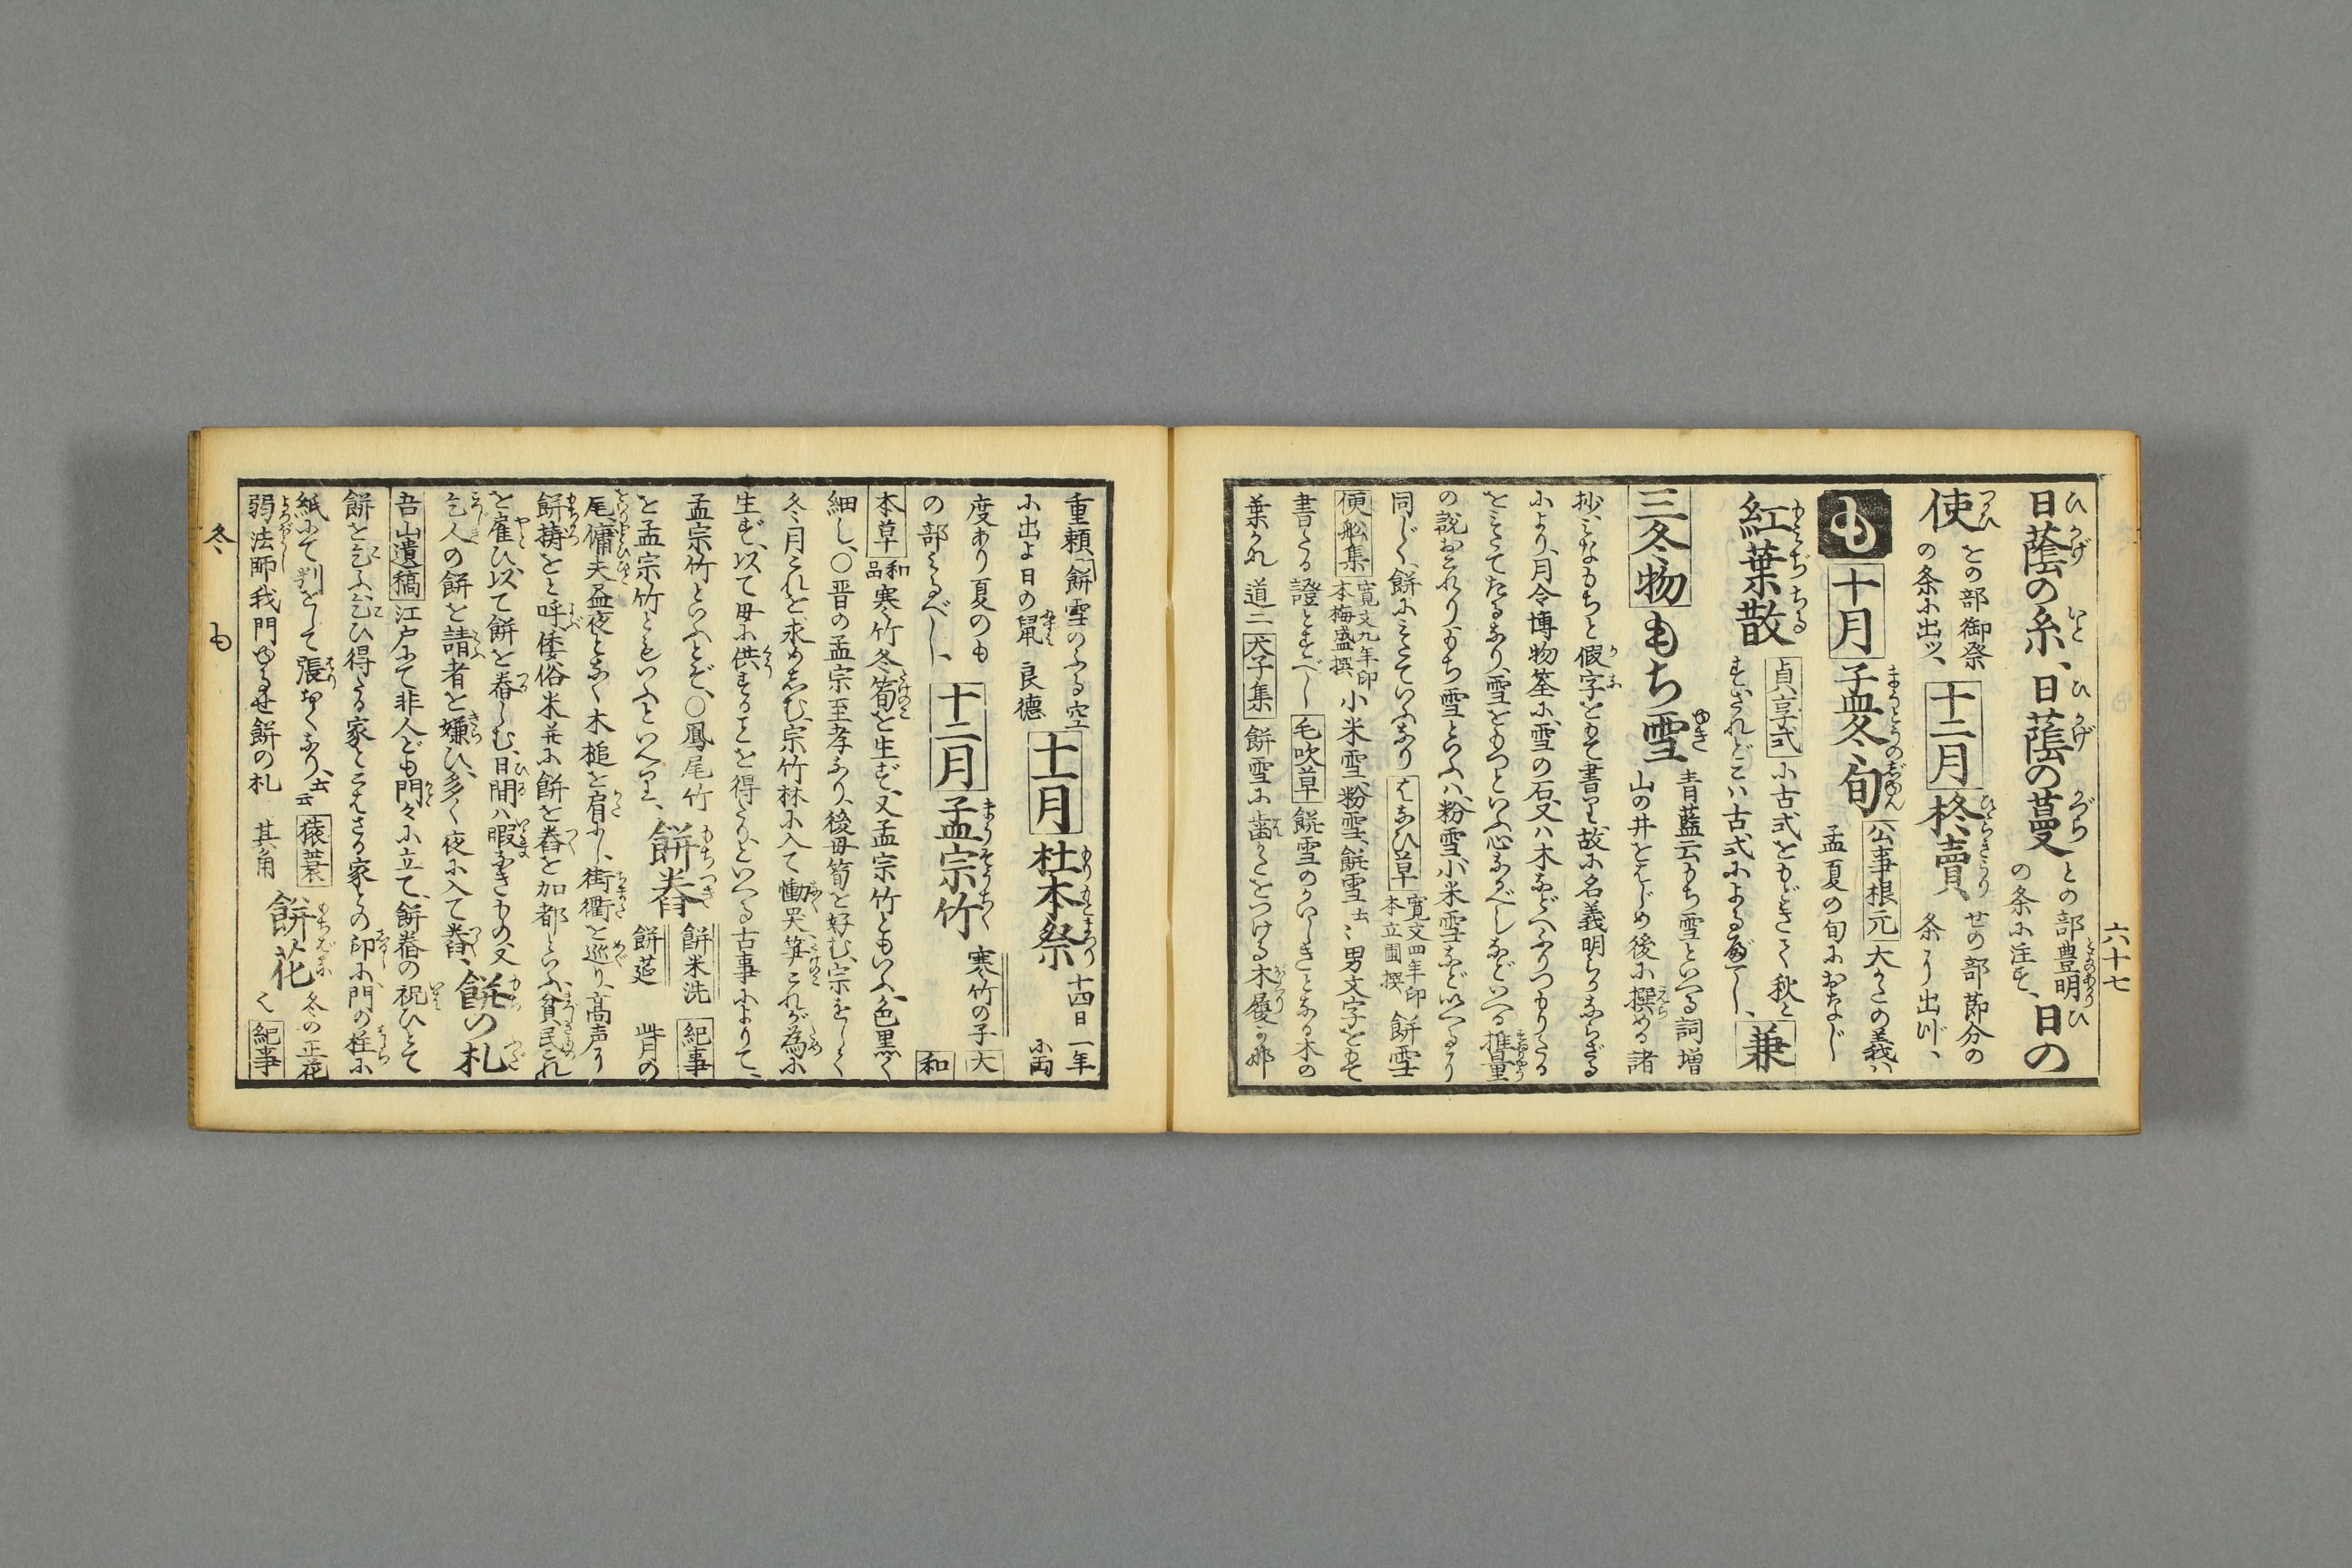 六十七
日蔭の糸、日蔭の蔓 との部豊明
の条に注す、日の
使 との部御祭
の条に出ツ、 十二月 柊賣 せの部節分の
条より出ツ、
も 十月 孟冬旬 公事根元 大かたの義ハ
孟夏の旬におなじ
紅葉散 貞享式 に古式をもどきて秋と
すされどこハ古式によるべし、 兼
三冬物 もち雪 青藍云もち雪といへる詞増
山の井をはじめ後に撰める諸
抄、みなもちと假字をもて書り故に名義明らかならざる
により、月令博物筌に、雪の石又ハ木などへふりつもりたる
をみたてたるなり、雪をもつといふ心なるべしなどいへる推量
の説おこれり、もち雪といふハ、粉雪、小米雪などいへるより
同じく、餅にみたていふなり はなひ草 寛文四年印
本立圃撰 餅雪
便船集 寛文九年印
本梅盛撰 小米雪、粉雪、餅雪云々男文字をもて
書たる證とすべし 毛吹草 餅雪のかいしきとなる木の
葉かれ 道二 犬子集 餅雪に歯かたをつける木履かな
重頼「餅雪のふる空
に出よ日の鼠 良徳 十一月 杜本祭 十四日一年
に両
度あり夏のも
の部みるべし、 十二月 孟宗竹 寒竹の子 大
和
本草 和
品 寒竹冬筍を生ず、又孟宗竹ともいふ、色黒く
細し、〇晋の孟宗至孝なり、後母筍を好む、宗をして
冬月これを求めしむ、宗竹林に入て慟哭、笋これが為に
生ず、以て母に供することを得たり、といへる古事によりて、
孟宗竹といふとぞ、〇鳳尾竹
を孟宗竹ともいふといへり、 餅舂 餅米洗
餅莚 紀事 此月の
尾、傭夫昼夜となく木槌を肩にし、街衢を巡り、高声に
餅搗をと呼、倭俗米并に餅を舂を加都といふ、貧民これ
を雇ひ、以て餅を舂しむ、日間ハ暇なきもの、又
乞人の餅を請者を嫌ひ、多く夜に入て舂、 餅の札
吾山遺稿 江戸にて非人ども門々に立て、餅舂の祝ひとて
餅を乞ふ、乞ひ得たる家とえざる家との印に、門の柱に
紙にて判をして張おくなり、云云 猿蓑
弱法師我門ゆるせ餅の札 其角 餅花 冬の正花
く 紀事
冬 も